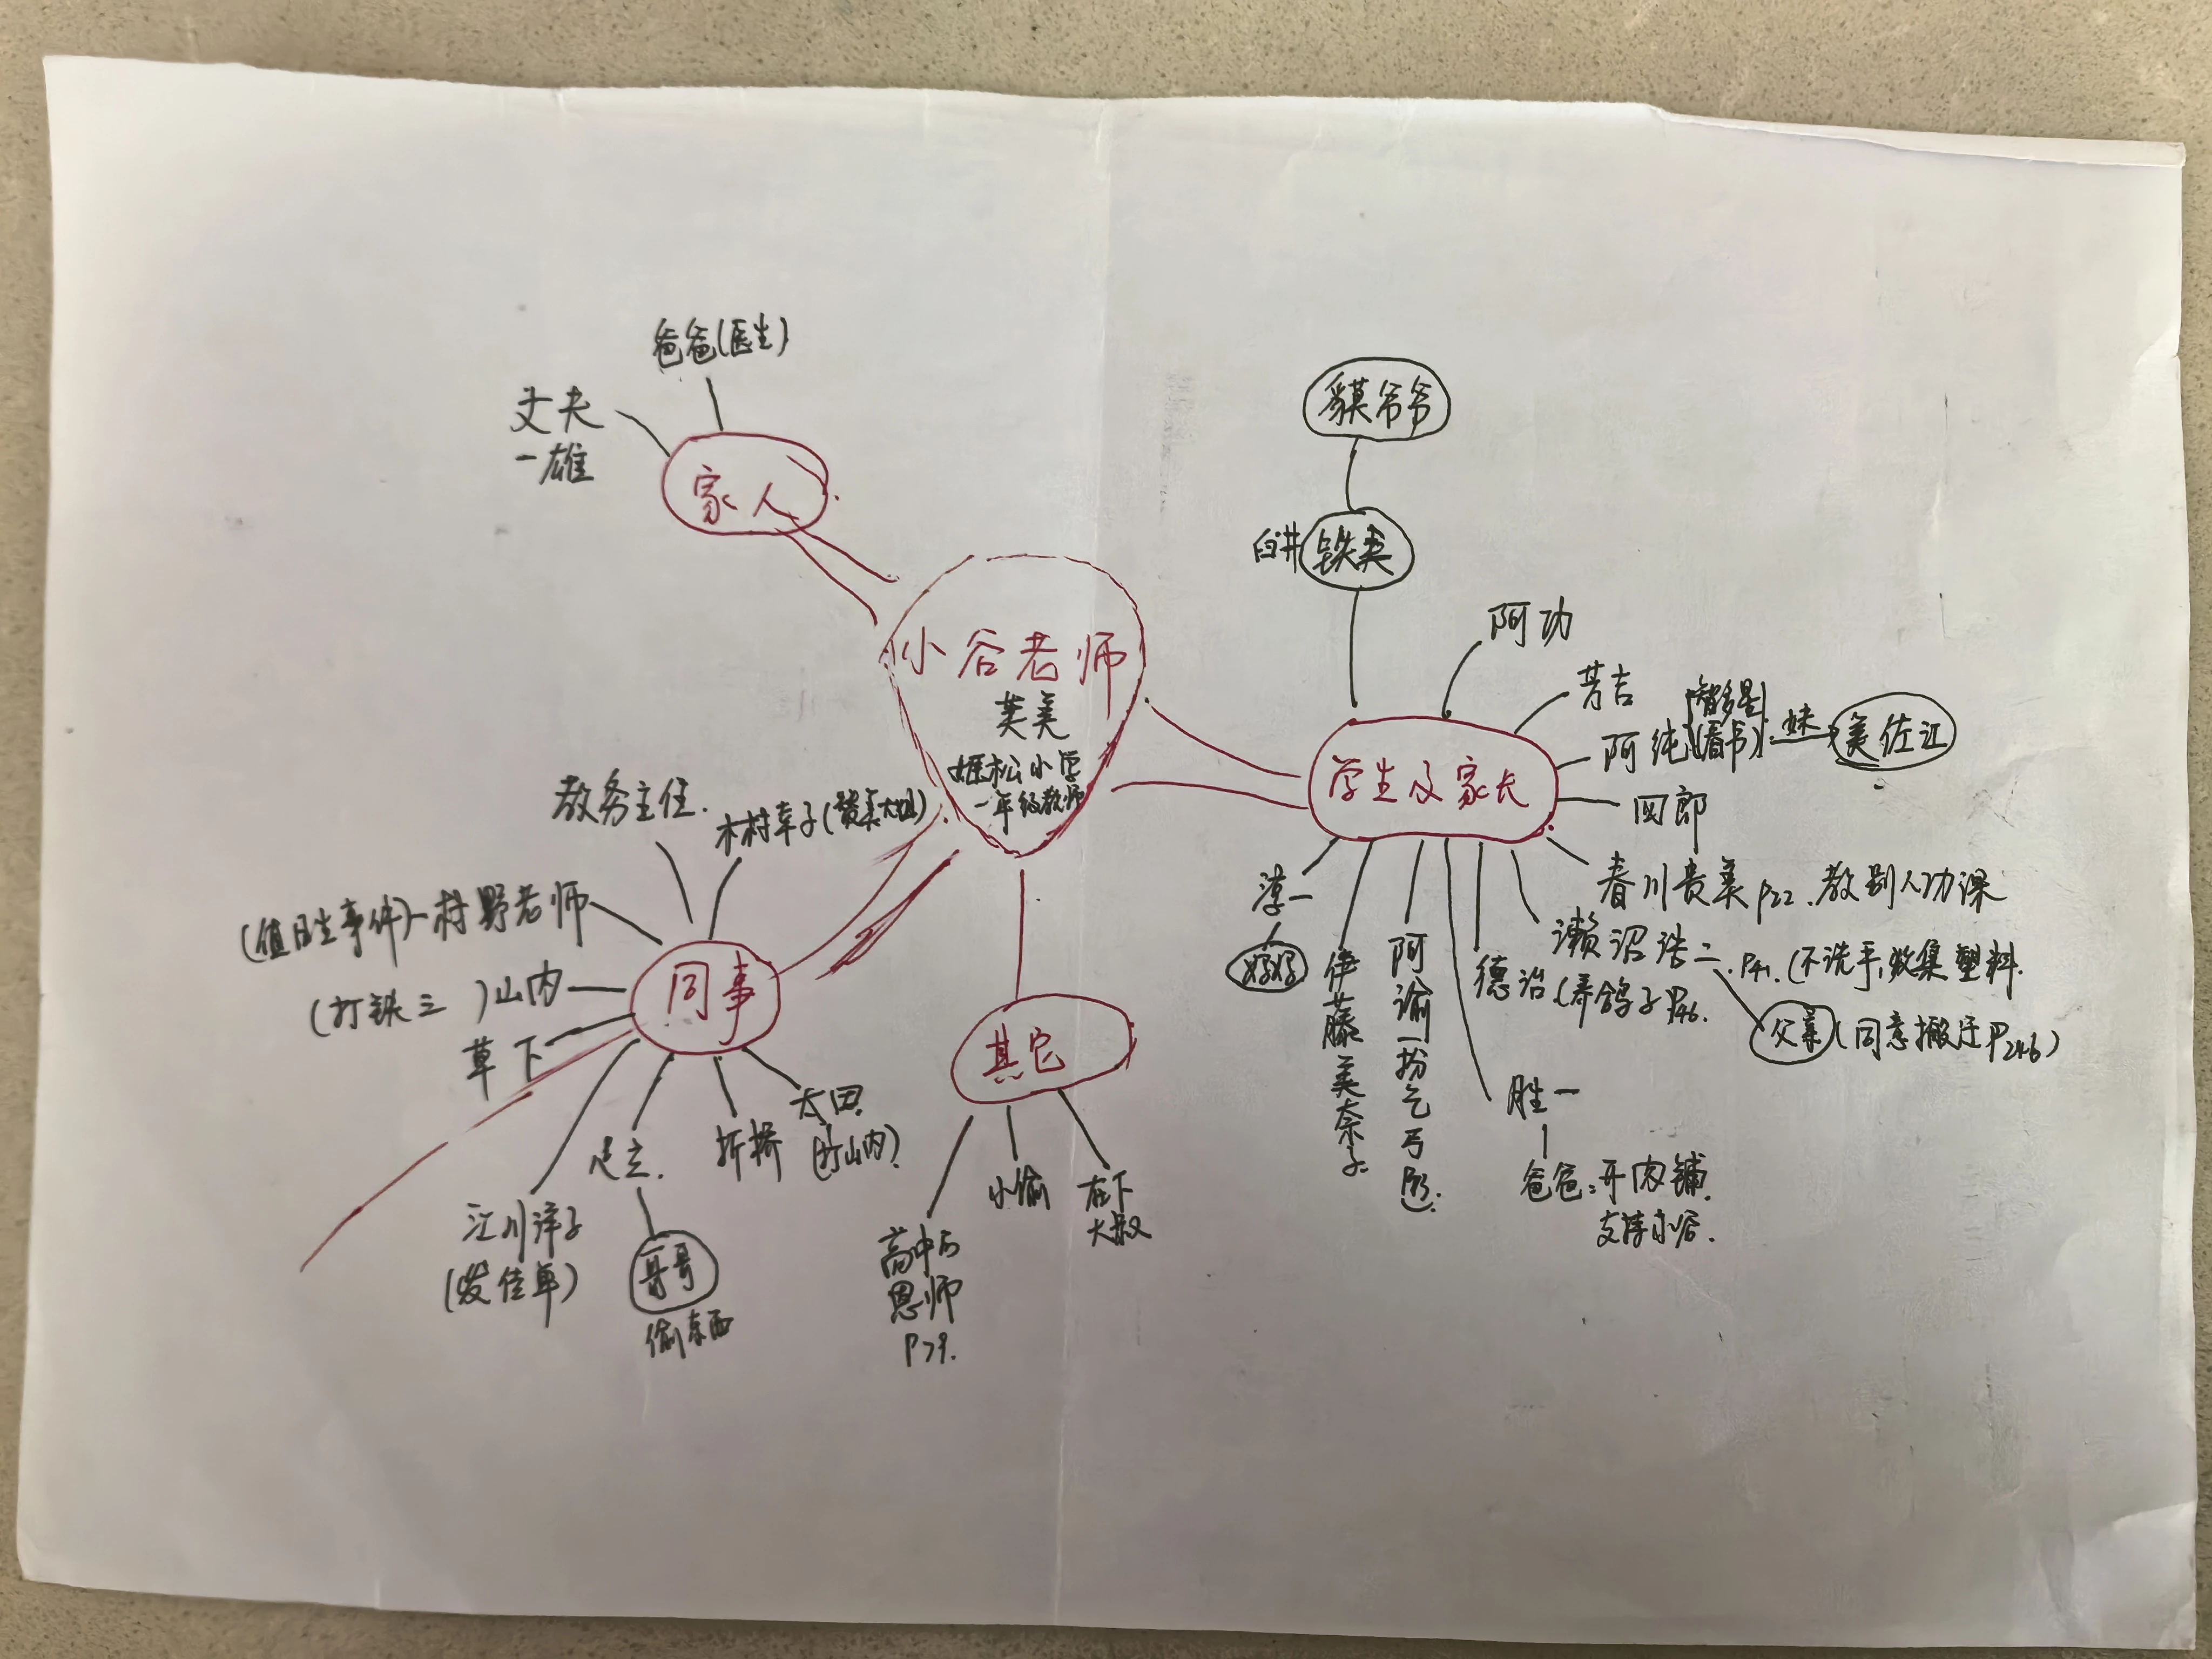 爸爸(医生)
丈夫
一雄
家人
小谷老师
芙美
姬松小学
一年级教师
教务主任.
木村幸子(
(值日生事件)-村野老师
(打铁三 )山内
草下
同事
江川洋子
足立.
哥哥
偷东西
折桥
太田.
其它
高中后
恩师
P79.
小偷
在下
大叔
獏爷爷
臼井 铁类
阿功
芳吉
阿纯
智多星
(看书)
妹
美佐江
学生及家长
四郎
春川贵美 P22.教别人功课
濑沼浩二.P41.(不洗手,收集塑料.
父亲(同意搬迁P246)
德治(养鸽子P46.
淳一
伊藤美奈子
阿谕-扮乞丐
胜一
爸爸:开肉铺.
支持小谷.